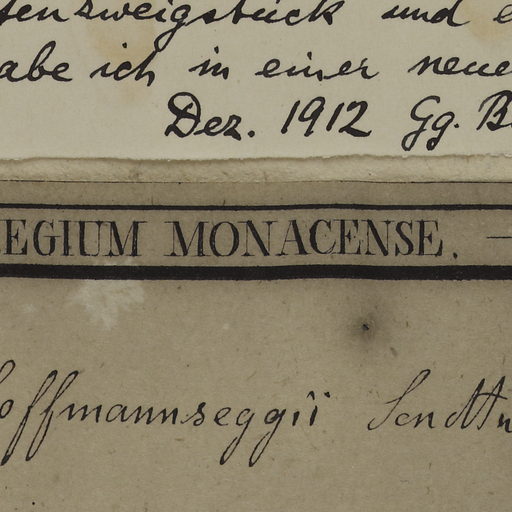 tenzweigstück und e
abe ich in einer neue
Dez. 1912 Gg. B
EGIUM MONACENSE. —
offmannseggii Sendtn